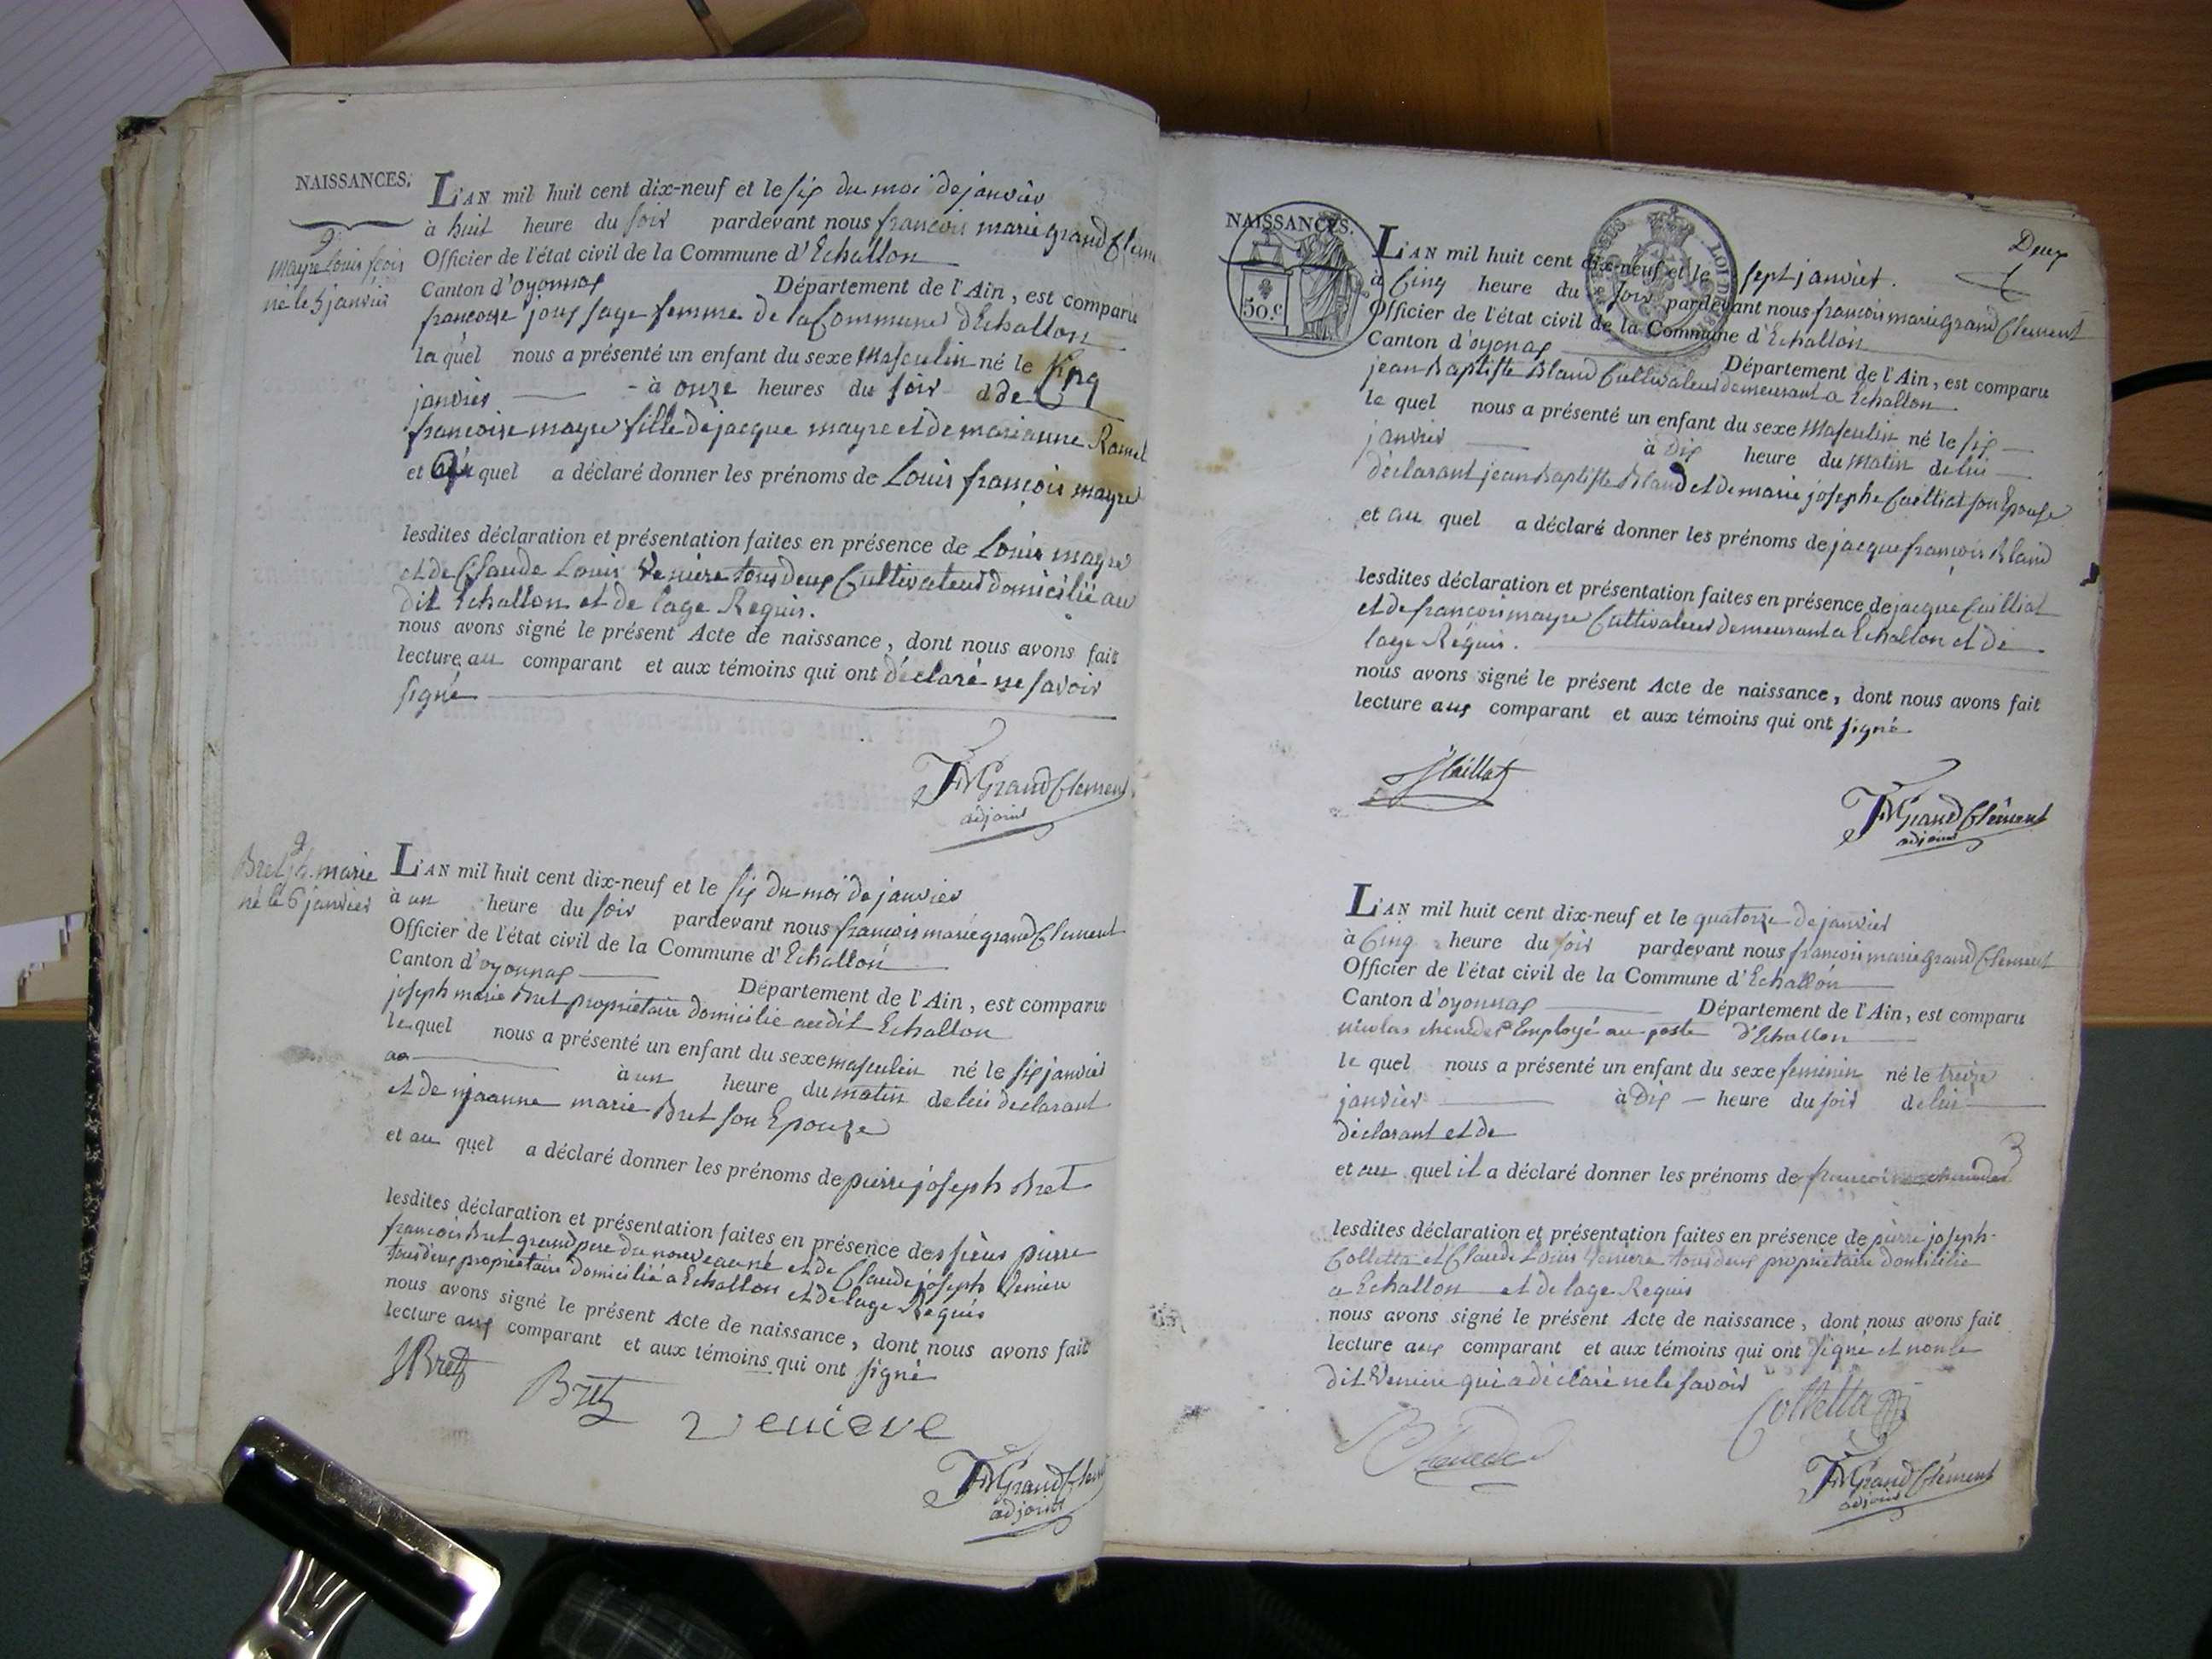 NAISSANCES.
2
mayre Louis fcois
né le 5 janvier
L'AN mil huit cent dix-neuf et le six du moi de janvier
à huit heure du soir pardevant nous francois marie grand Clem
Officier de l'état civil de la Commune d'Echallon
Canton d'oyonnax Département de l'Ain, est comparu
francoise joux sage femme de la Commune d'Echallon
la quel nous a présenté un enfant du sexe Masculin né le Cinq
janvier - à onze heures du soir d de
francoise mayre fille de jacque mayre et de marianne Ramel
et quel a déclaré donner les prénoms de Louis françois mayre
lesdites déclaration et présentation faites en présence de Louis mayre
et de Claude Louis Veniere tous deux Cultivateur domicilié au
dit Echallon et de lage Requis.
nous avons signé le présent Acte de naissance, dont nous avons fait
lecture au comparant et aux témoins qui ont déclaré ne savoir
signé
FM Grand Clement
adjoint
2
Bret marie
né le 6 janvier
L'AN mil huit cent dix-neuf et le six du moi de janvier
à un heure du soir pardevant nous francois marie grand Clement
Officier de l'état civil de la Commune d'Echallon
Canton d'oyonnax Département de l'Ain, est comparu
joseph marie Bret propriétaire domicilié audit Echallon
le quel nous a présenté un enfant du sexe masculin né le six janvier
à un heure du matin de lui declarant
et de marie Bret son Epouze
et au quel a déclaré donner les prénoms de pierre joseph Bret
lesdites déclaration et présentation faites en présence des sieus pierre
francois Bret grand pere du nouveau né et de Claude joseph Veniere
tous deux propriétaire domicilié a Echallon et de lage Requis
nous avons signé le présent Acte de naissance, dont nous avons fait
lecture aux comparant et aux témoins qui ont signé
JBret Bret
Veniere
FM Grand Clem
adjoint
NAISSANCES.
50.c
LOI D
Deux
L'AN mil huit cent dix-neuf et le sept janvier.
à Cinq heure du soir pardevant nous francois marie grand Clement
Officier de l'état civil de la Commune d'Echallon
Canton d'oyonax Département de l'Ain, est comparu
jean Baptiste Bland Cultivateur demeurant a Echallon
le quel nous a présenté un enfant du sexe Masculin né le six
janvier à Dix heure du Matin de lui
déclarant jean Baptiste Bland et de marie josephe Cailliat son Epouse
et au quel a déclaré donner les prénoms de jacque francois Bland
lesdites déclaration et présentation faites en présence de jacque Cailliat
et de françois mayre Cultivateur demeurant a Echallon et de
lage Requis.
nous avons signé le présent Acte de naissance, dont nous avons fait
lecture aux comparant et aux témoins qui ont signé
JCaillat
FM Grand Clément
adjoint
L'AN mil huit cent dix-neuf et le quatorze de janvier
à Cinq heure du soir pardevant nous francois marie grand Clement
Officier de l'état civil de la Commune d'Echallon
Canton d'oyonnax Département de l'Ain, est comparu
nicolas Employé au poste d'Echallon
le quel nous a présenté un enfant du sexe feminin né le treize
janvier à Dix heure du soir de lui
déclarant et de
et au quel il a déclaré donner les prénoms de
3
lesdites déclaration et présentation faites en présence de pierre joseph
Colletta et Claude Louis Veniere tous deux propriétaire domicilié
a Echallon et de lage Requis
nous avons signé le présent Acte de naissance, dont nous avons fait
lecture aux comparant et aux témoins qui ont signé et non le
dit Veniere qui a déclaré ne le savoir
Colletta
FM Grand Clément
adjoint